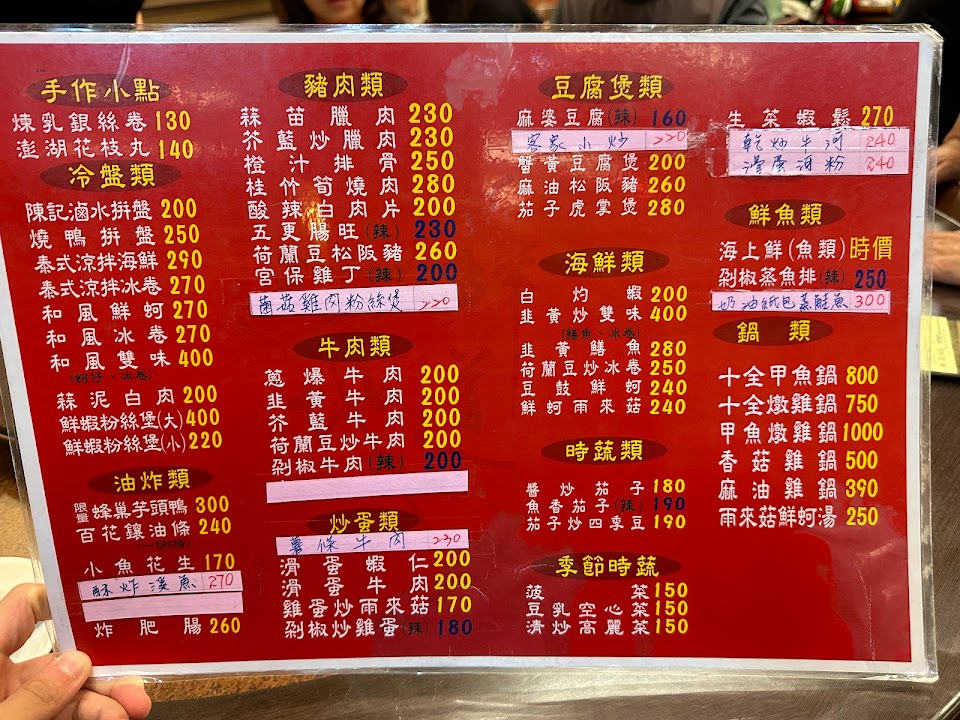 手作小點
煉乳銀絲卷 130
澎湖花枝丸 140
冷盤類
陳記滷水拼盤 200
燒鴨拼盤 250
泰式涼拌海鮮 290
泰式涼拌冰卷 270
和風鮮蚵 270
和風冰卷 270
和風雙味 400
(蚵仔、冰卷)
蒜泥白肉 200
鮮蝦粉絲堡(大) 400
鮮蝦粉絲堡(小) 220
油炸類
限量 蜂巢芋頭鴨 300
百花鑲油條 240
小魚花生 170
酥炸溪魚 270
炸肥腸 260
豬肉類
蒜苗臘肉 230
芥藍炒臘肉 230
橙汁排骨 250
桂竹筍燒肉 280
酸辣白肉片 200
五更腸旺(辣) 230
荷蘭豆松阪豬 260
宮保雞丁(辣) 200
菌菇雞肉粉絲煲 220
牛肉類
蔥爆牛肉 200
韭黃牛肉 200
芥藍牛肉 200
荷蘭豆炒牛肉 200
剁椒牛肉(辣) 200
炒蛋類
薯條牛肉 230
滑蛋蝦仁 200
滑蛋牛肉 200
雞蛋炒雨來菇 170
剁椒炒雞蛋(辣) 180
豆腐煲類
麻婆豆腐(辣) 160
客家小炒 220
蟹黃豆腐煲 200
麻油松阪豬 260
茄子虎掌煲 280
海鮮類
白灼蝦 200
韭黃炒雙味 400
(鱔魚、冰卷)
韭黃鱔魚 280
荷蘭豆炒冰卷 250
豆鼓鮮蚵 240
鮮蚵雨來菇 240
時蔬類
醬炒茄子 180
魚香茄子(辣) 190
茄子炒四季豆 190
季節時蔬
菠菜 150
豆乳空心菜 150
清炒高麗菜 150
生菜蝦鬆 270
乾炒牛河 240
滑蛋河粉 240
鮮魚類
海上鮮(魚類) 時價
剁椒蒸魚排(辣) 250
奶油紙包蒸鮭魚 300
鍋類
十全甲魚鍋 800
十全燉雞鍋 750
甲魚燉雞鍋 1000
香菇雞鍋 500
麻油雞鍋 390
雨來菇鮮蚵湯 250